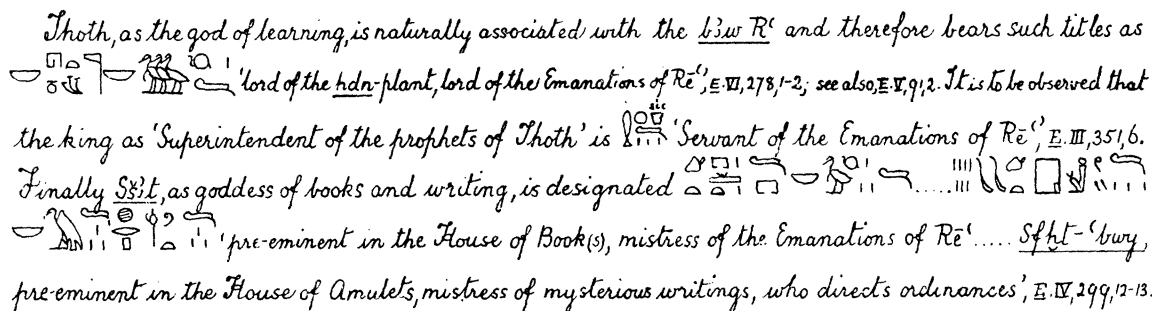 Thoth, as the god of learning, is naturally associated with the bꜣw Rꜥ and therefore bears such titles as
'lord of the hdn-plant, lord of the Emanations of Rēꜥ', E. VI, 278, 1-2; see also, E. V, 91, 2. It is to be observed that
the king as 'Superintendent of the prophets of Thoth' is 'Servant of the Emanations of Rēꜥ', E. III, 351, 6.
Finally Sšꜣt, as goddess of books and writing, is designated .....
'pre-eminent in the House of Book(s), mistress of the Emanations of Rēꜥ ..... Sfḫt-ꜥbwy,
pre-eminent in the House of Amulets, mistress of mysterious writings, who directs ordinances', E. IV, 299, 12-13.